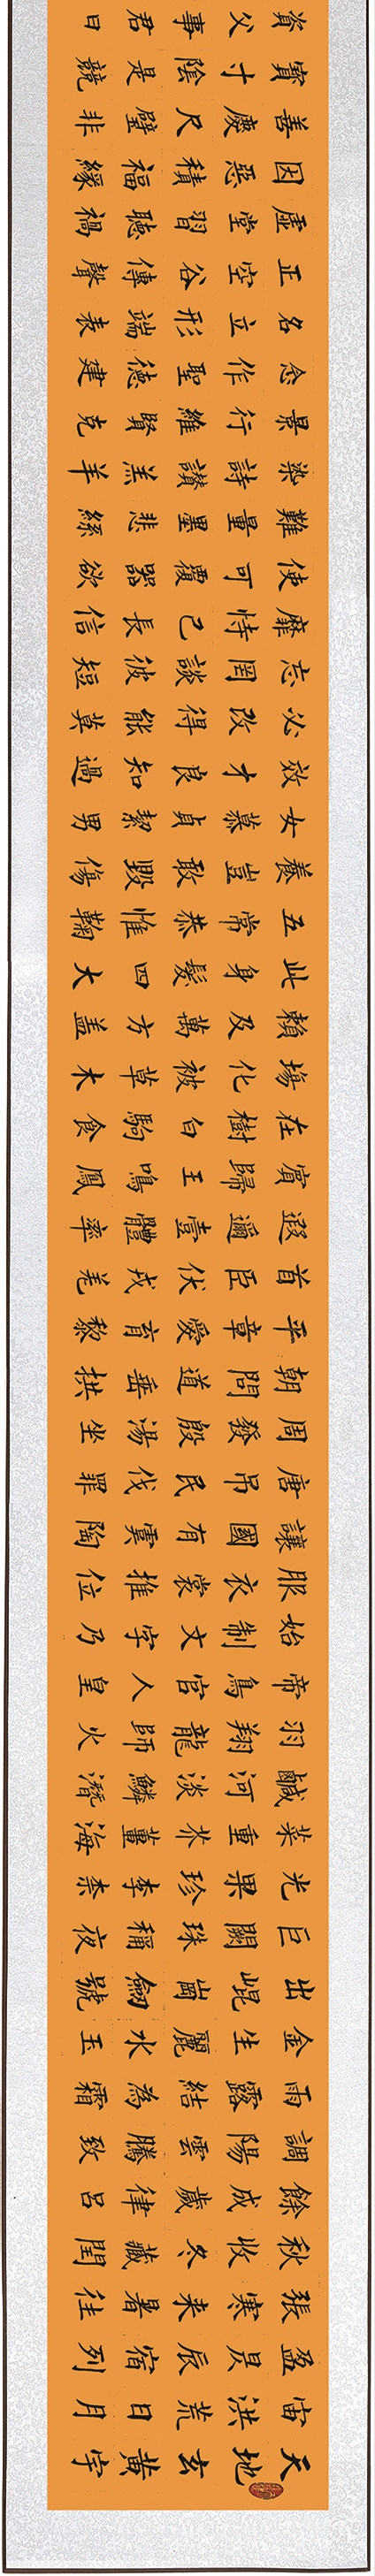 天地玄黃宇
宙洪荒日月
盈昃辰宿列
張寒来暑往
秋收冬藏閏
餘成歲律呂
調陽雲騰致
雨露結為霜
金生麗水玉
出崐崗劒號
巨闕珠稱夜
光果珍李柰
菜重芥薑海
鹹河淡鱗潛
羽翔龍師火
帝鳥官人皇
始制文字乃
服衣裳推位
讓國有虞陶
唐吊民伐罪
周發殷湯坐
朝問道垂拱
平章愛育黎
首臣伏戎羌
遐邇壹體率
賓歸王鳴鳳
在樹白駒食
場化被草木
賴及萬方盖
此身髮四大
五常恭惟鞠
養豈敢毀傷
女慕貞絜男
效才良知過
必改得能莫
忘罔談彼短
靡恃己長信
使可覆器欲
難量墨悲絲
染詩讃羔羊
景行維賢克
念作聖德建
名立形端表
正空谷傳聲
虛堂習聽禍
因惡積福緣
善慶尺璧非
寶寸陰是競
資父事君曰